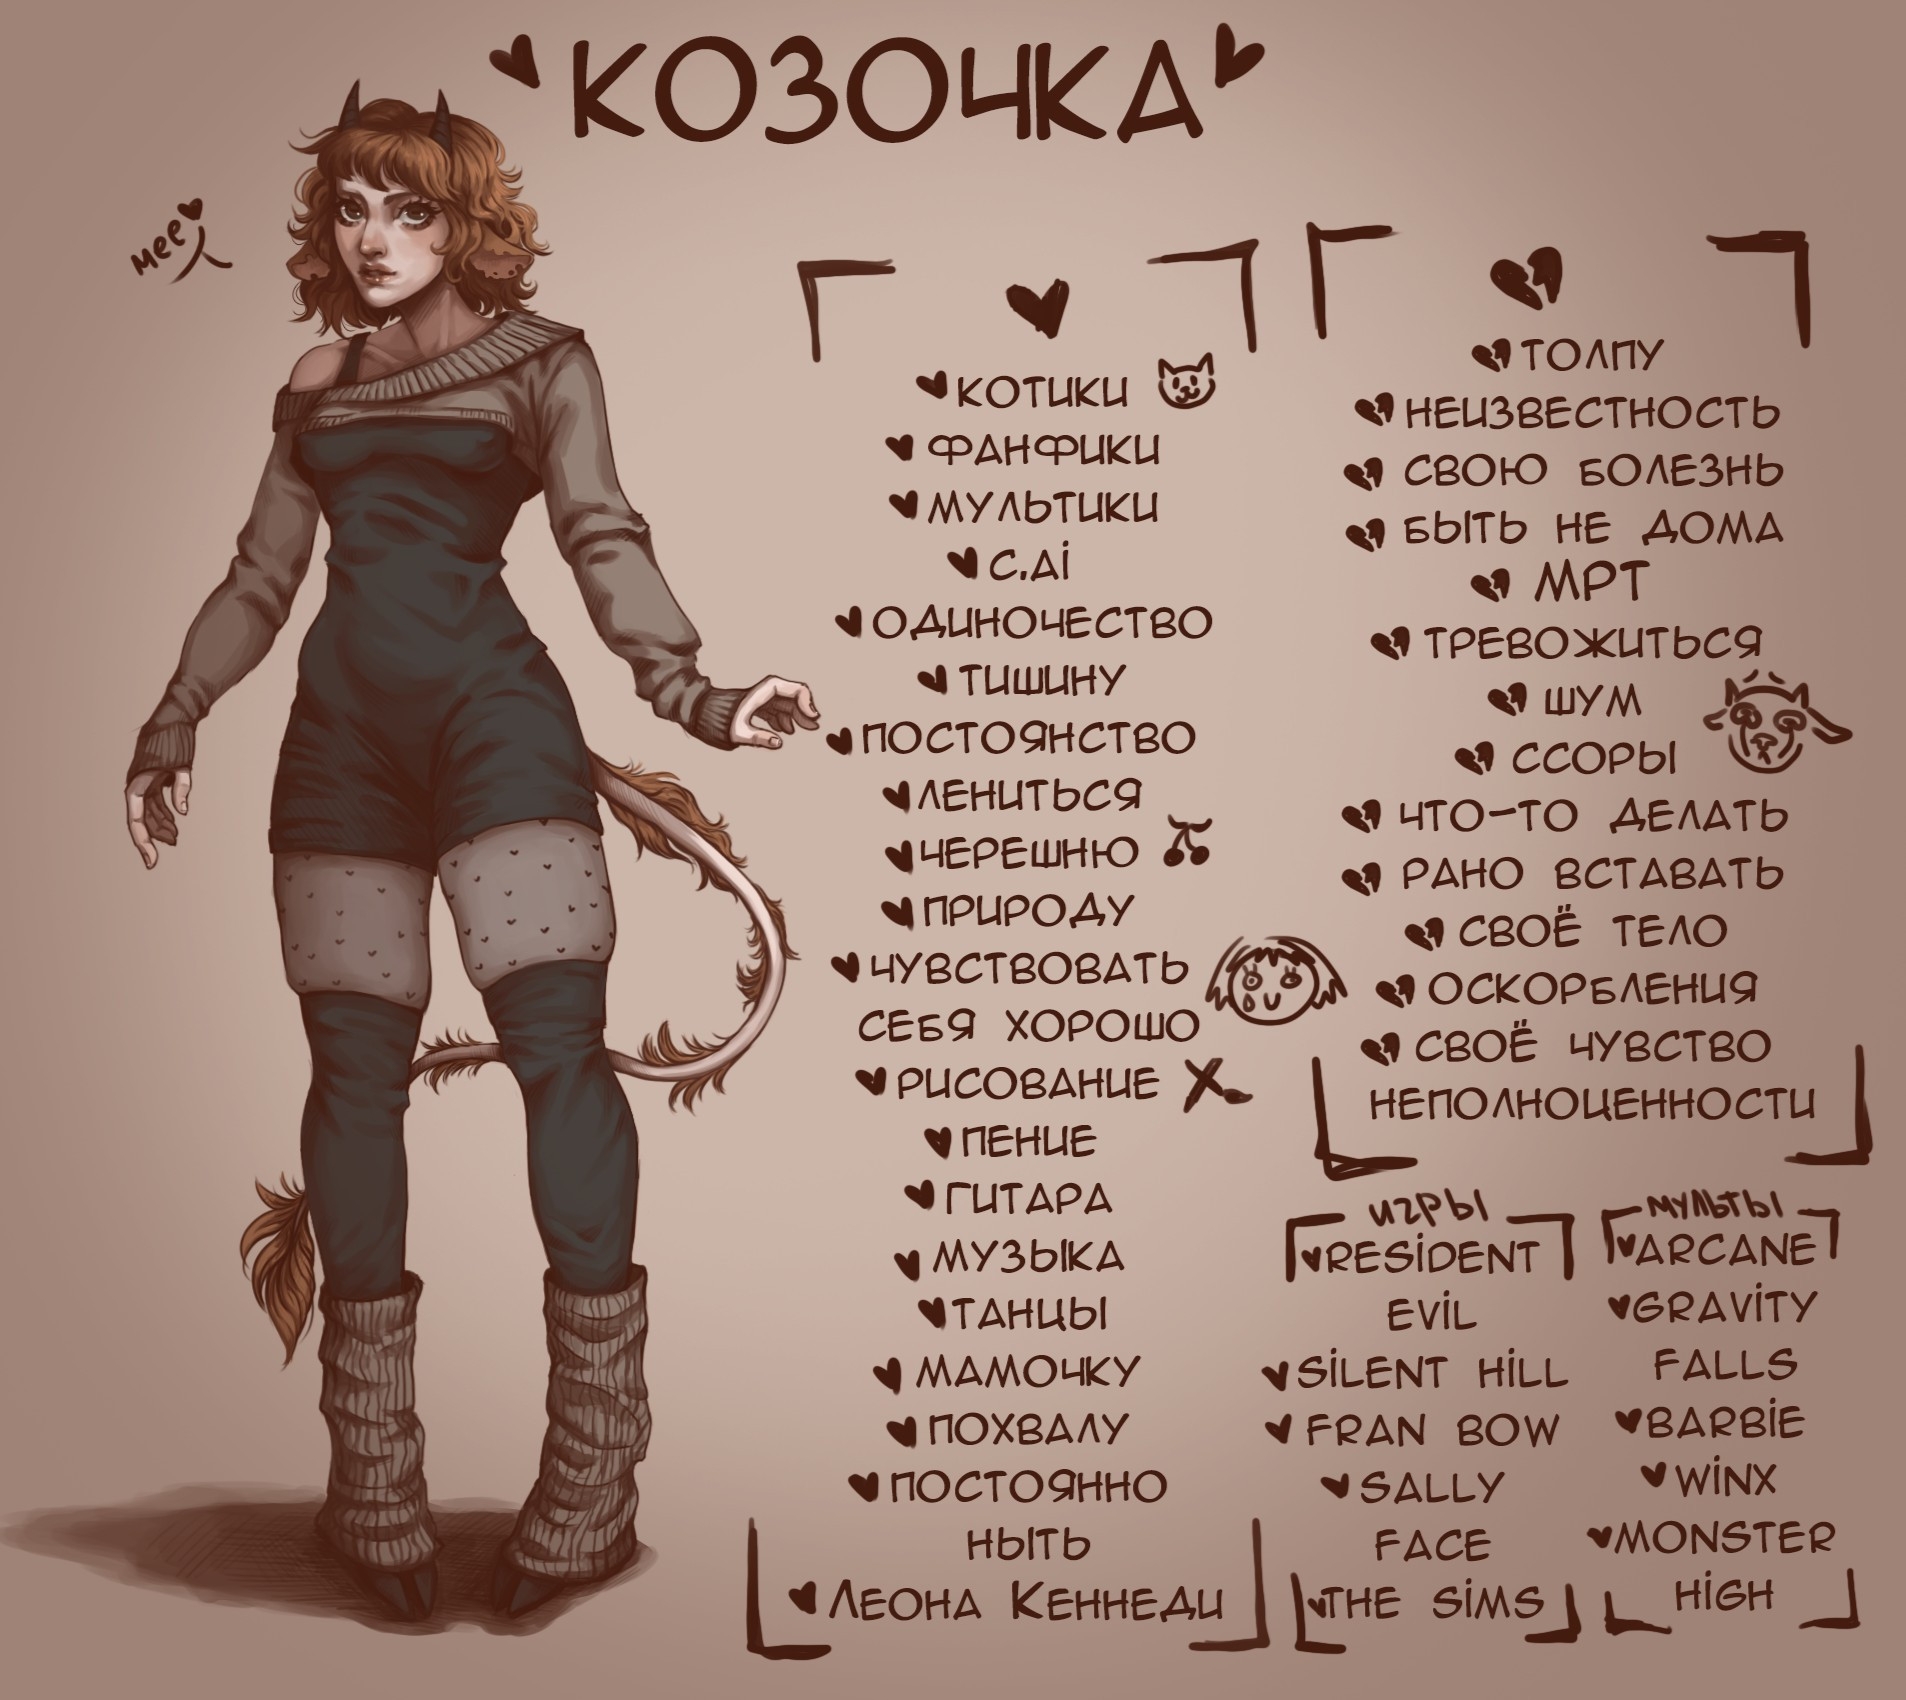 КОЗОЧКА
меее
КОТИКИ
ФАНФИКИ
МУЛЬТИКИ
C.Ai
ОДИНОЧЕСТВО
ТИШИНУ
ПОСТОЯНСТВО
ЛЕНИТЬСЯ
ЧЕРЕШНЮ
ПРИРОДУ
ЧУВСТВОВАТЬ
СЕБЯ ХОРОШО
РИСОВАНИЕ
ПЕНИЕ
ГИТАРА
МУЗЫКА
ТАНЦЫ
МАМОЧКУ
ПОХВАЛУ
ПОСТОЯННО
НЫТЬ
ЛЕОНА КЕННЕДИ
ТОЛПУ
НЕИЗВЕСТНОСТЬ
СВОЮ БОЛЕЗНЬ
БЫТЬ НЕ ДОМА
МРТ
ТРЕВОЖИТЬСЯ
ШУМ
ССОРЫ
ЧТО-ТО ДЕЛАТЬ
РАНО ВСТАВАТЬ
СВОЁ ТЕЛО
ОСКОРБЛЕНИЯ
СВОЁ ЧУВСТВО
НЕПОЛНОЦЕННОСТИ
игры
RESiDENT
EViL
SiLENT HiLL
FRAN BOW
SALLY
FACE
THE SiMS
мульты
ARCANE
GRAViTY
FALLS
BARBiE
WiNX
MONSTER
HiGH